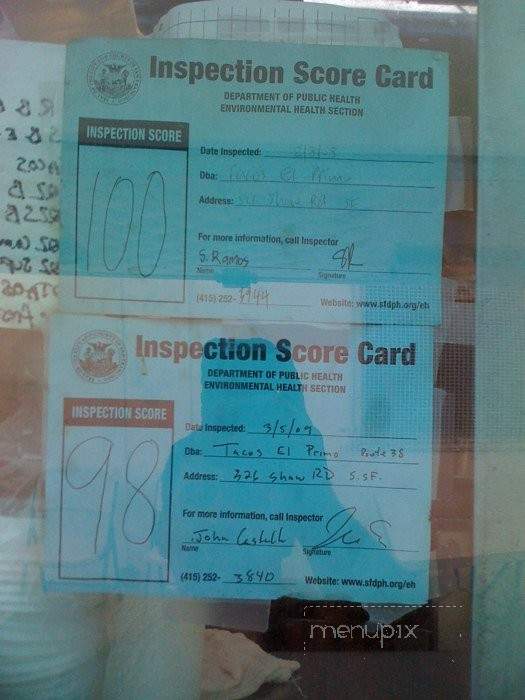 Inspection Score Card
DEPARTMENT OF PUBLIC HEALTH
ENVIRONMENTAL HEALTH SECTION
INSPECTION SCORE
100
Date Inspected:
Dba: Tacos El Primo
Address: Shaw Rd SF
For more information, call Inspector
S. Ramos
Name Signature
(415) 252- 3944 Website: www.sfdph.org/eh
Inspection Score Card
DEPARTMENT OF PUBLIC HEALTH
ENVIRONMENTAL HEALTH SECTION
INSPECTION SCORE
98
Date Inspected: 3/5/09
Dba: Tacos El Primo Route 38
Address: 326 Shaw RD S.SF.
For more information, call Inspector
John
Name Signature
(415) 252- 3840 Website: www.sfdph.org/eh
menupix